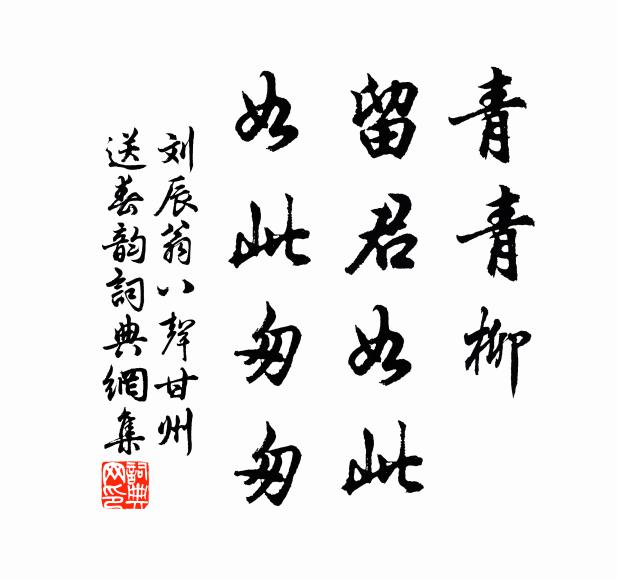 青青柳
留君如此
如此匆匆
刘辰翁八聲甘州
送春韵詞典網集
詞典网印